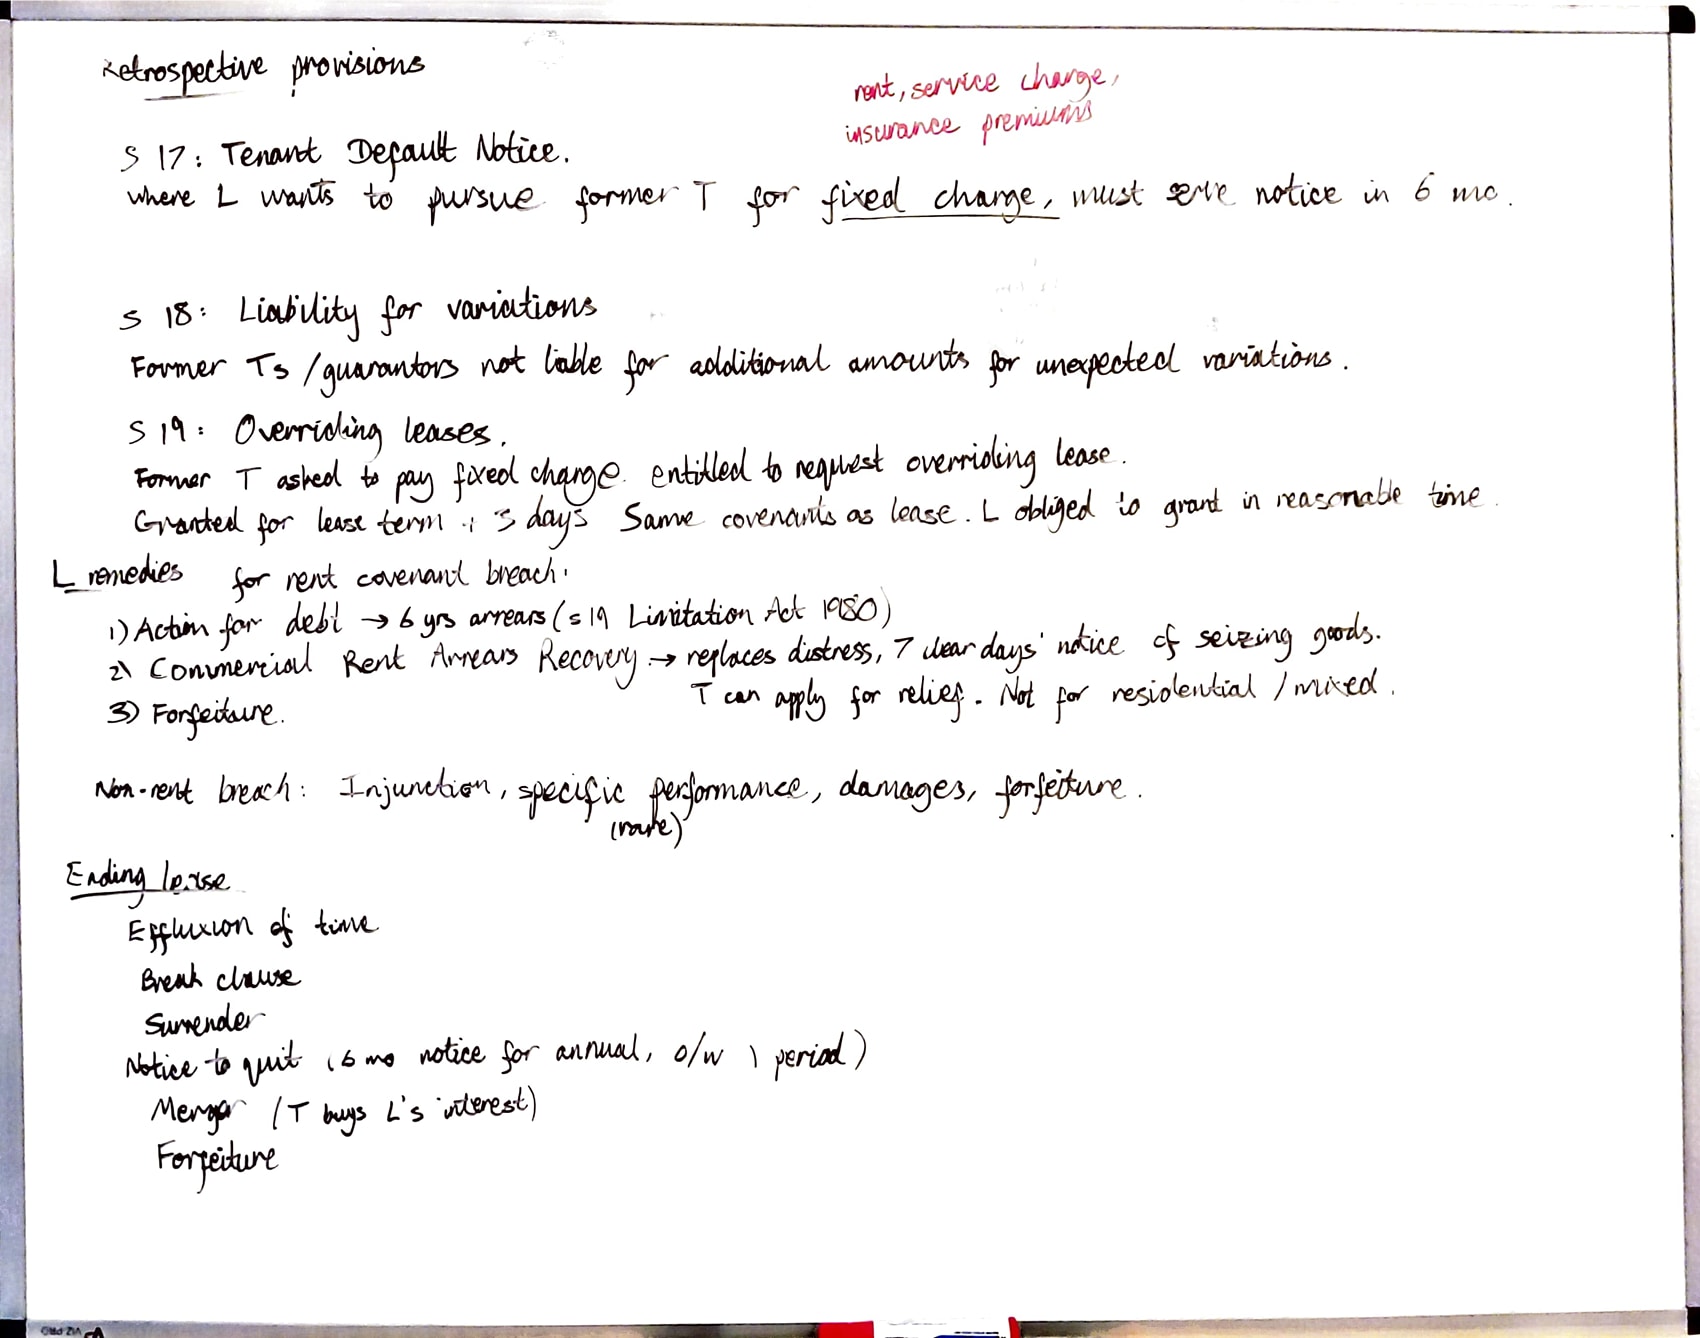 Retrospective provisions
rent, service charge,
insurance premiums
S 17: Tenant Default Notice.
where L wants to pursue former T for fixed charge, must serve notice in 6 mo.
S 18: Liability for variations
Former Ts / guarantors not liable for additional amounts for unexpected variations.
S 19: Overriding leases.
Former T asked to pay fixed charge entitled to request overriding lease.
Granted for lease term + 3 days Same covenants as lease. L obliged to grant in reasonable time.
L remedies for rent covenant breach.
1) Action for debt → 6 yrs arrears (s 19 Limitation Act 1980)
2) Commercial Rent Arrears Recovery → replaces distress, 7 clear days' notice of seizing goods.
T can apply for relief. Not for residential / mixed.
3) Forfeiture.
Non-rent breach: Injunction, specific performance, damages, forfeiture.
(rare)
Ending lease
Effluxion of time
Break clause
Surrender
Notice to quit (6 mo notice for annual, o/w 1 period)
Merger (T buys L's interest)
Forfeiture